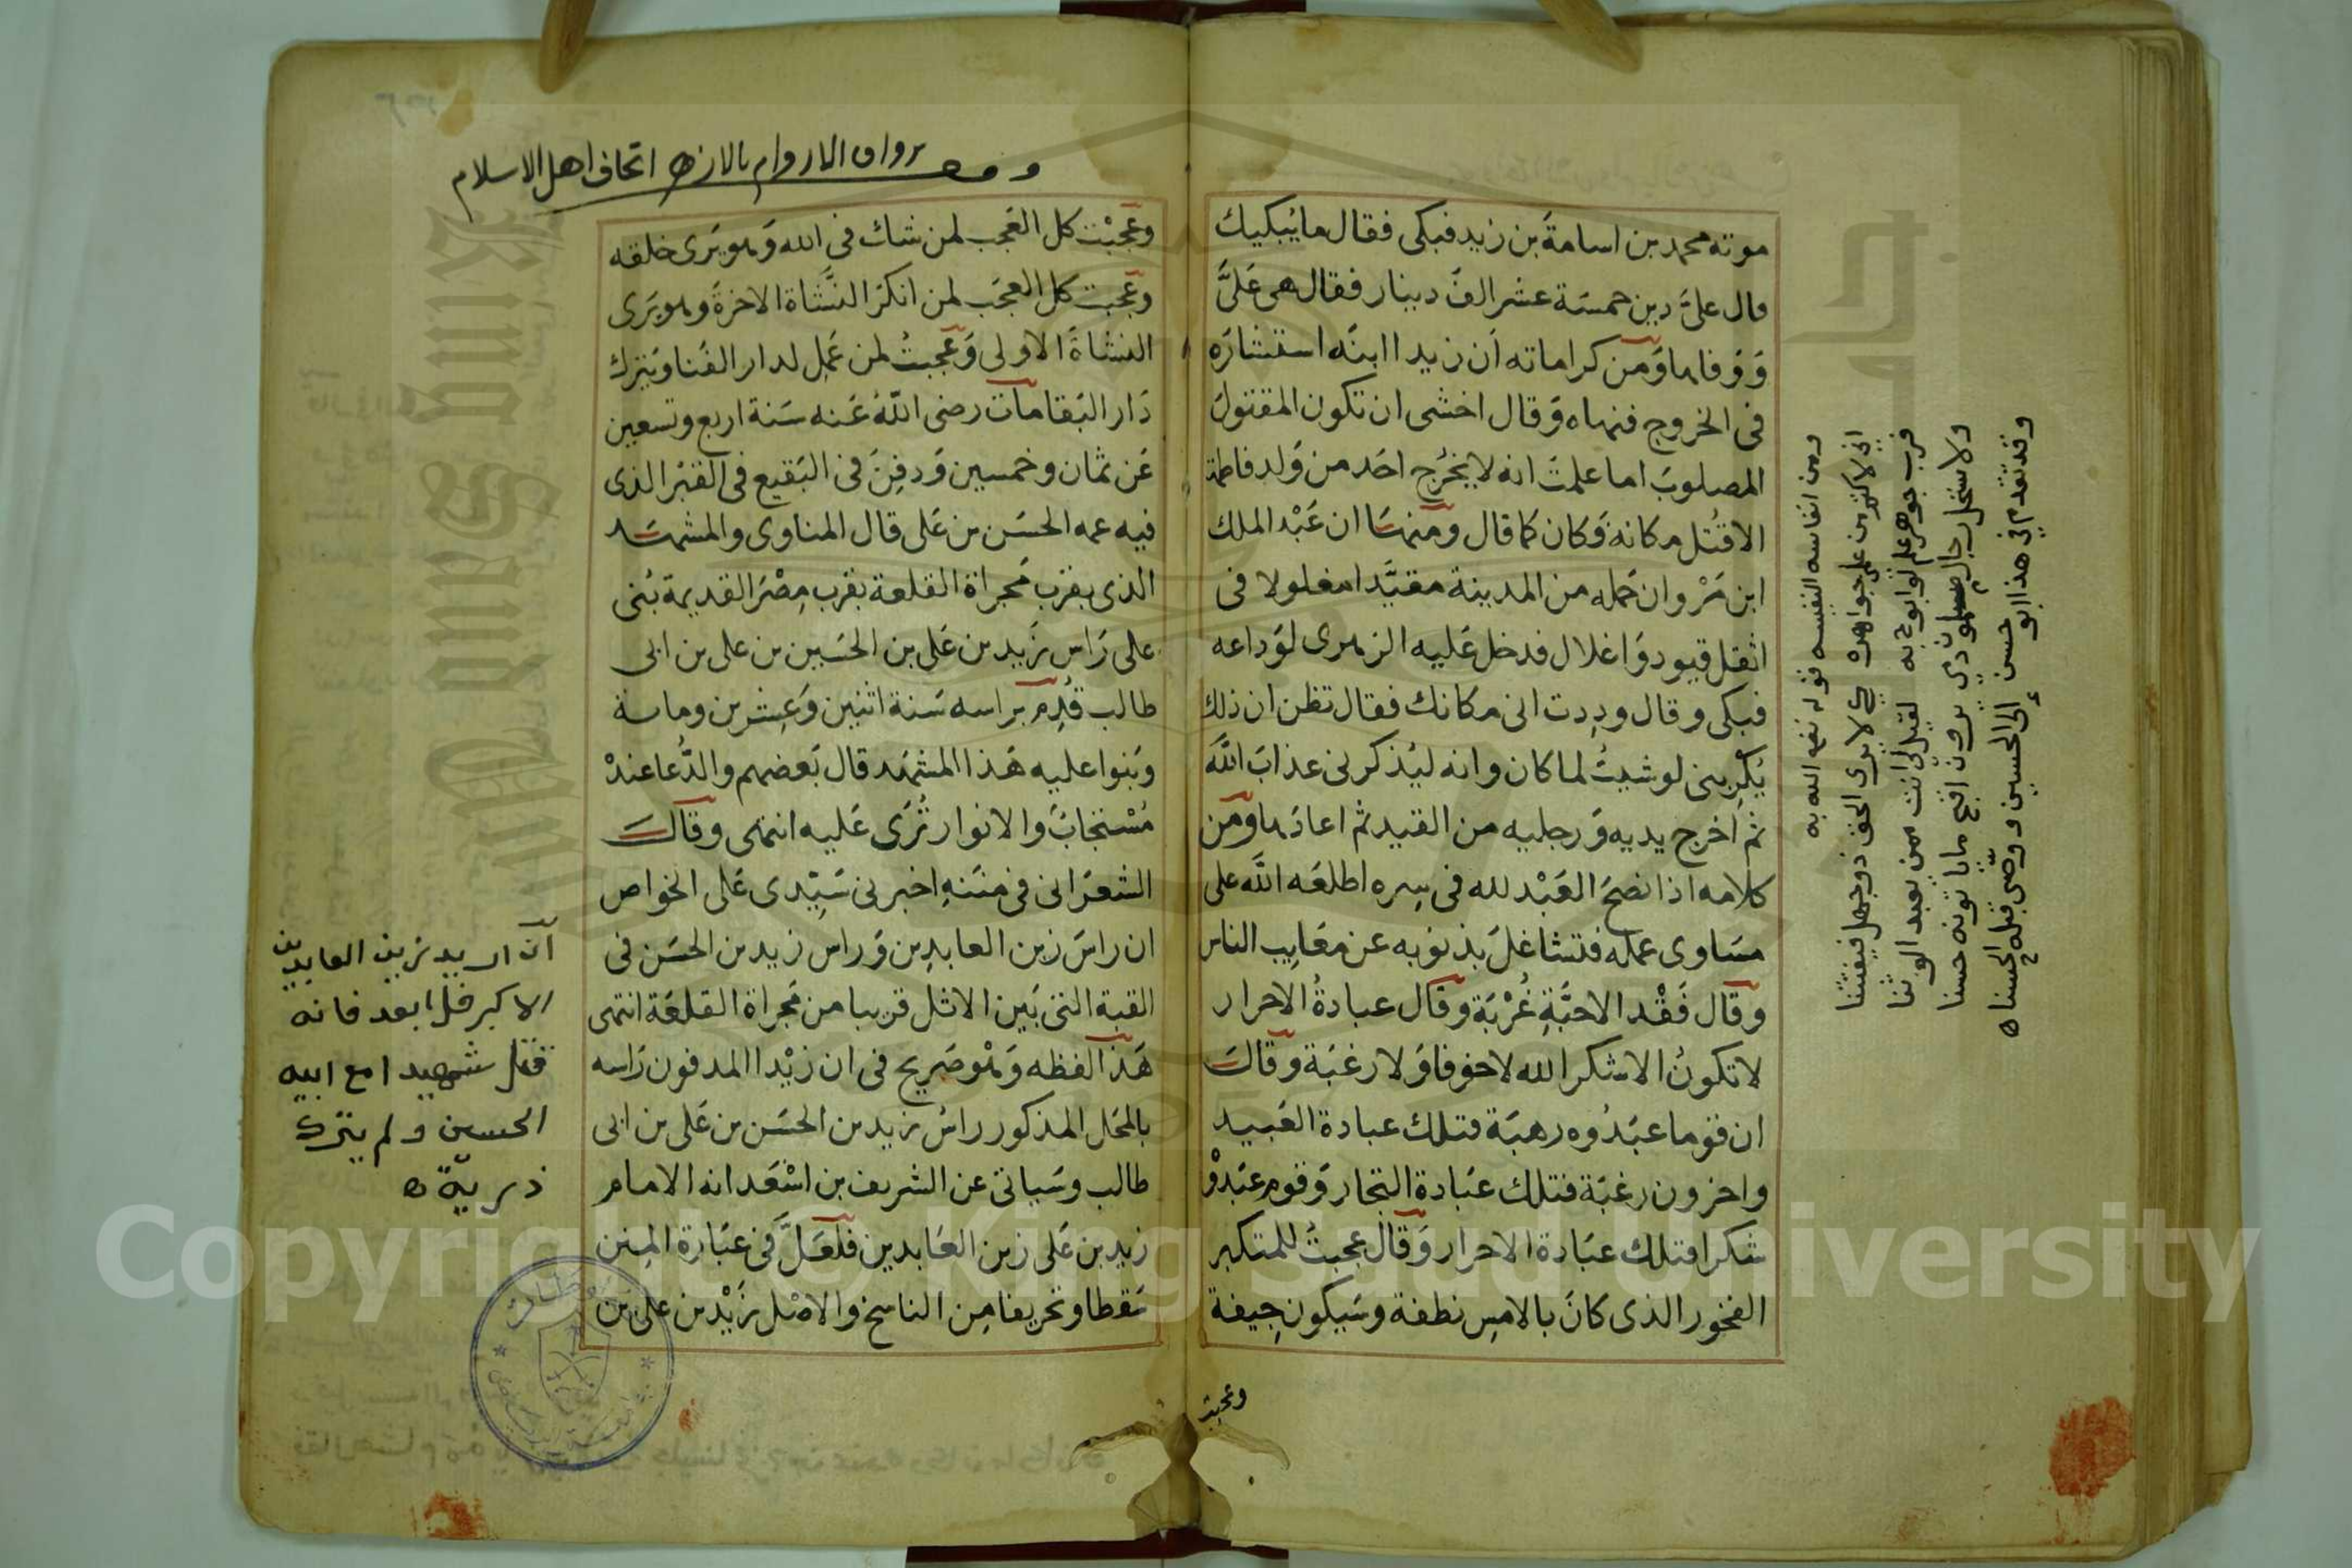 موته محمد بن اسامة بن زيد فبكى فقال ما يبكيك
قال علىّ دين خمسة عشر الف دينار فقال هى علىّ
ووفاها ومن كراماته ان زيدا ابنه استشاره
فى الخروج فنهاه وقال اخشى ان تكون المقتول
المصلوب اما علمت انه لا يخرج احد من ولد فاطمة
الا قتل مكانه وكان كما قال ومنها ان عبد الملك
ابن مروان حمله من المدينة مقيدا مغلولا فى
اثقل قيود واغلال فدخل عليه الزهرى لوداعه
فبكى وقال وددت انى مكانك فقال تظن ان ذلك
يكربنى لو شيت لما كان وانه ليذكرنى عذاب الله
ثم اخرج يديه ورجليه من القيد ثم اعادها ومن
كلامه اذا نصح العبد لله فى سره اطلعه الله على
مساوى عمله فتشاغل بذنوبه عن معايب الناس
وقال فقد الاحبة غربة وقال عبادة الاحرار
لا تكون الا شكرا لله لا خوفا ولا رغبة وقال
ان قوما عبدوه رهبة فتلك عبادة العبيد
واخرون رغبة فتلك عبادة التجار وقوم عبدو
شكرا فتلك عبادة الاحرار وقال عجبت للمتكبر
الفخور الذى كان بالامس نطفة وسيكون جيفة
وعجبت
ومن انفاسه النفيسه قوله نفعنا الله به
انى لاكتم من علمى جواهره كى لا يرى الحق ذو جهل فيفتننا
فرب جوهر علم لو ابوح به لقيل لى انت ممن يعبد الوثنا
ولاستحل رجال مسلمون دمى يرون اقبح ما ياتونه حسنا
وقد تقدم فى هذا ابو حسن إلى الحسين ووصّى قبله الحسنا
وقف رواق الاروام بالازهر اتحاف اهل الاسلام
وعجبت كل العجب لمن شك فى الله وهو يرى خلقه
وعجبت كل العجب لمن انكر النشاة الاخرة وهو يرى
النشاة الاولى وعجبت لمن عمل لدار الفنا ويترك
دار البقا مات رضى الله عنه سنة اربع وتسعين
عن ثمان وخمسين ودفن فى البقيع فى القبر الذى
فيه عمه الحسن بن على قال المناوى والمشهد
الذى بقرب مجراة القلعة بقرب مصر القديمة بنى
على راس زيد بن على بن الحسين بن على بن ابى
طالب قدم براسه سنة اثنين وعشرين وماية
وبنوا عليه هذا المشهد قال بعضهم والدعا عنده
مستجاب والانوار ترى عليه انتهى وقال
الشعرانى فى مننه اخبرنى سيدى على الخواص
ان راس زين العابدين وراس زيد بن الحسن فى
القبة التى بين الاثل قريبا من مجراة القلعة انتهى
هذا لفظه وهو صريح فى ان زيدا المدفون راسه
بالمحل المذكور راس زيد بن الحسن بن على بن ابى
طالب وسياتى عن الشريف بن اسعد انه الامام
زيد بن على زين العابدين فلعل فى عبارة المنن
سقطا وتحريفا من الناسخ والاصل زيد بن على بن
ان اريد بزين العابدين
الاكبر فلا بعد فانه
قتل شهيدا مع ابيه
الحسين ولم يترك
ذرية
King Saud University
Copyright © King Saud University